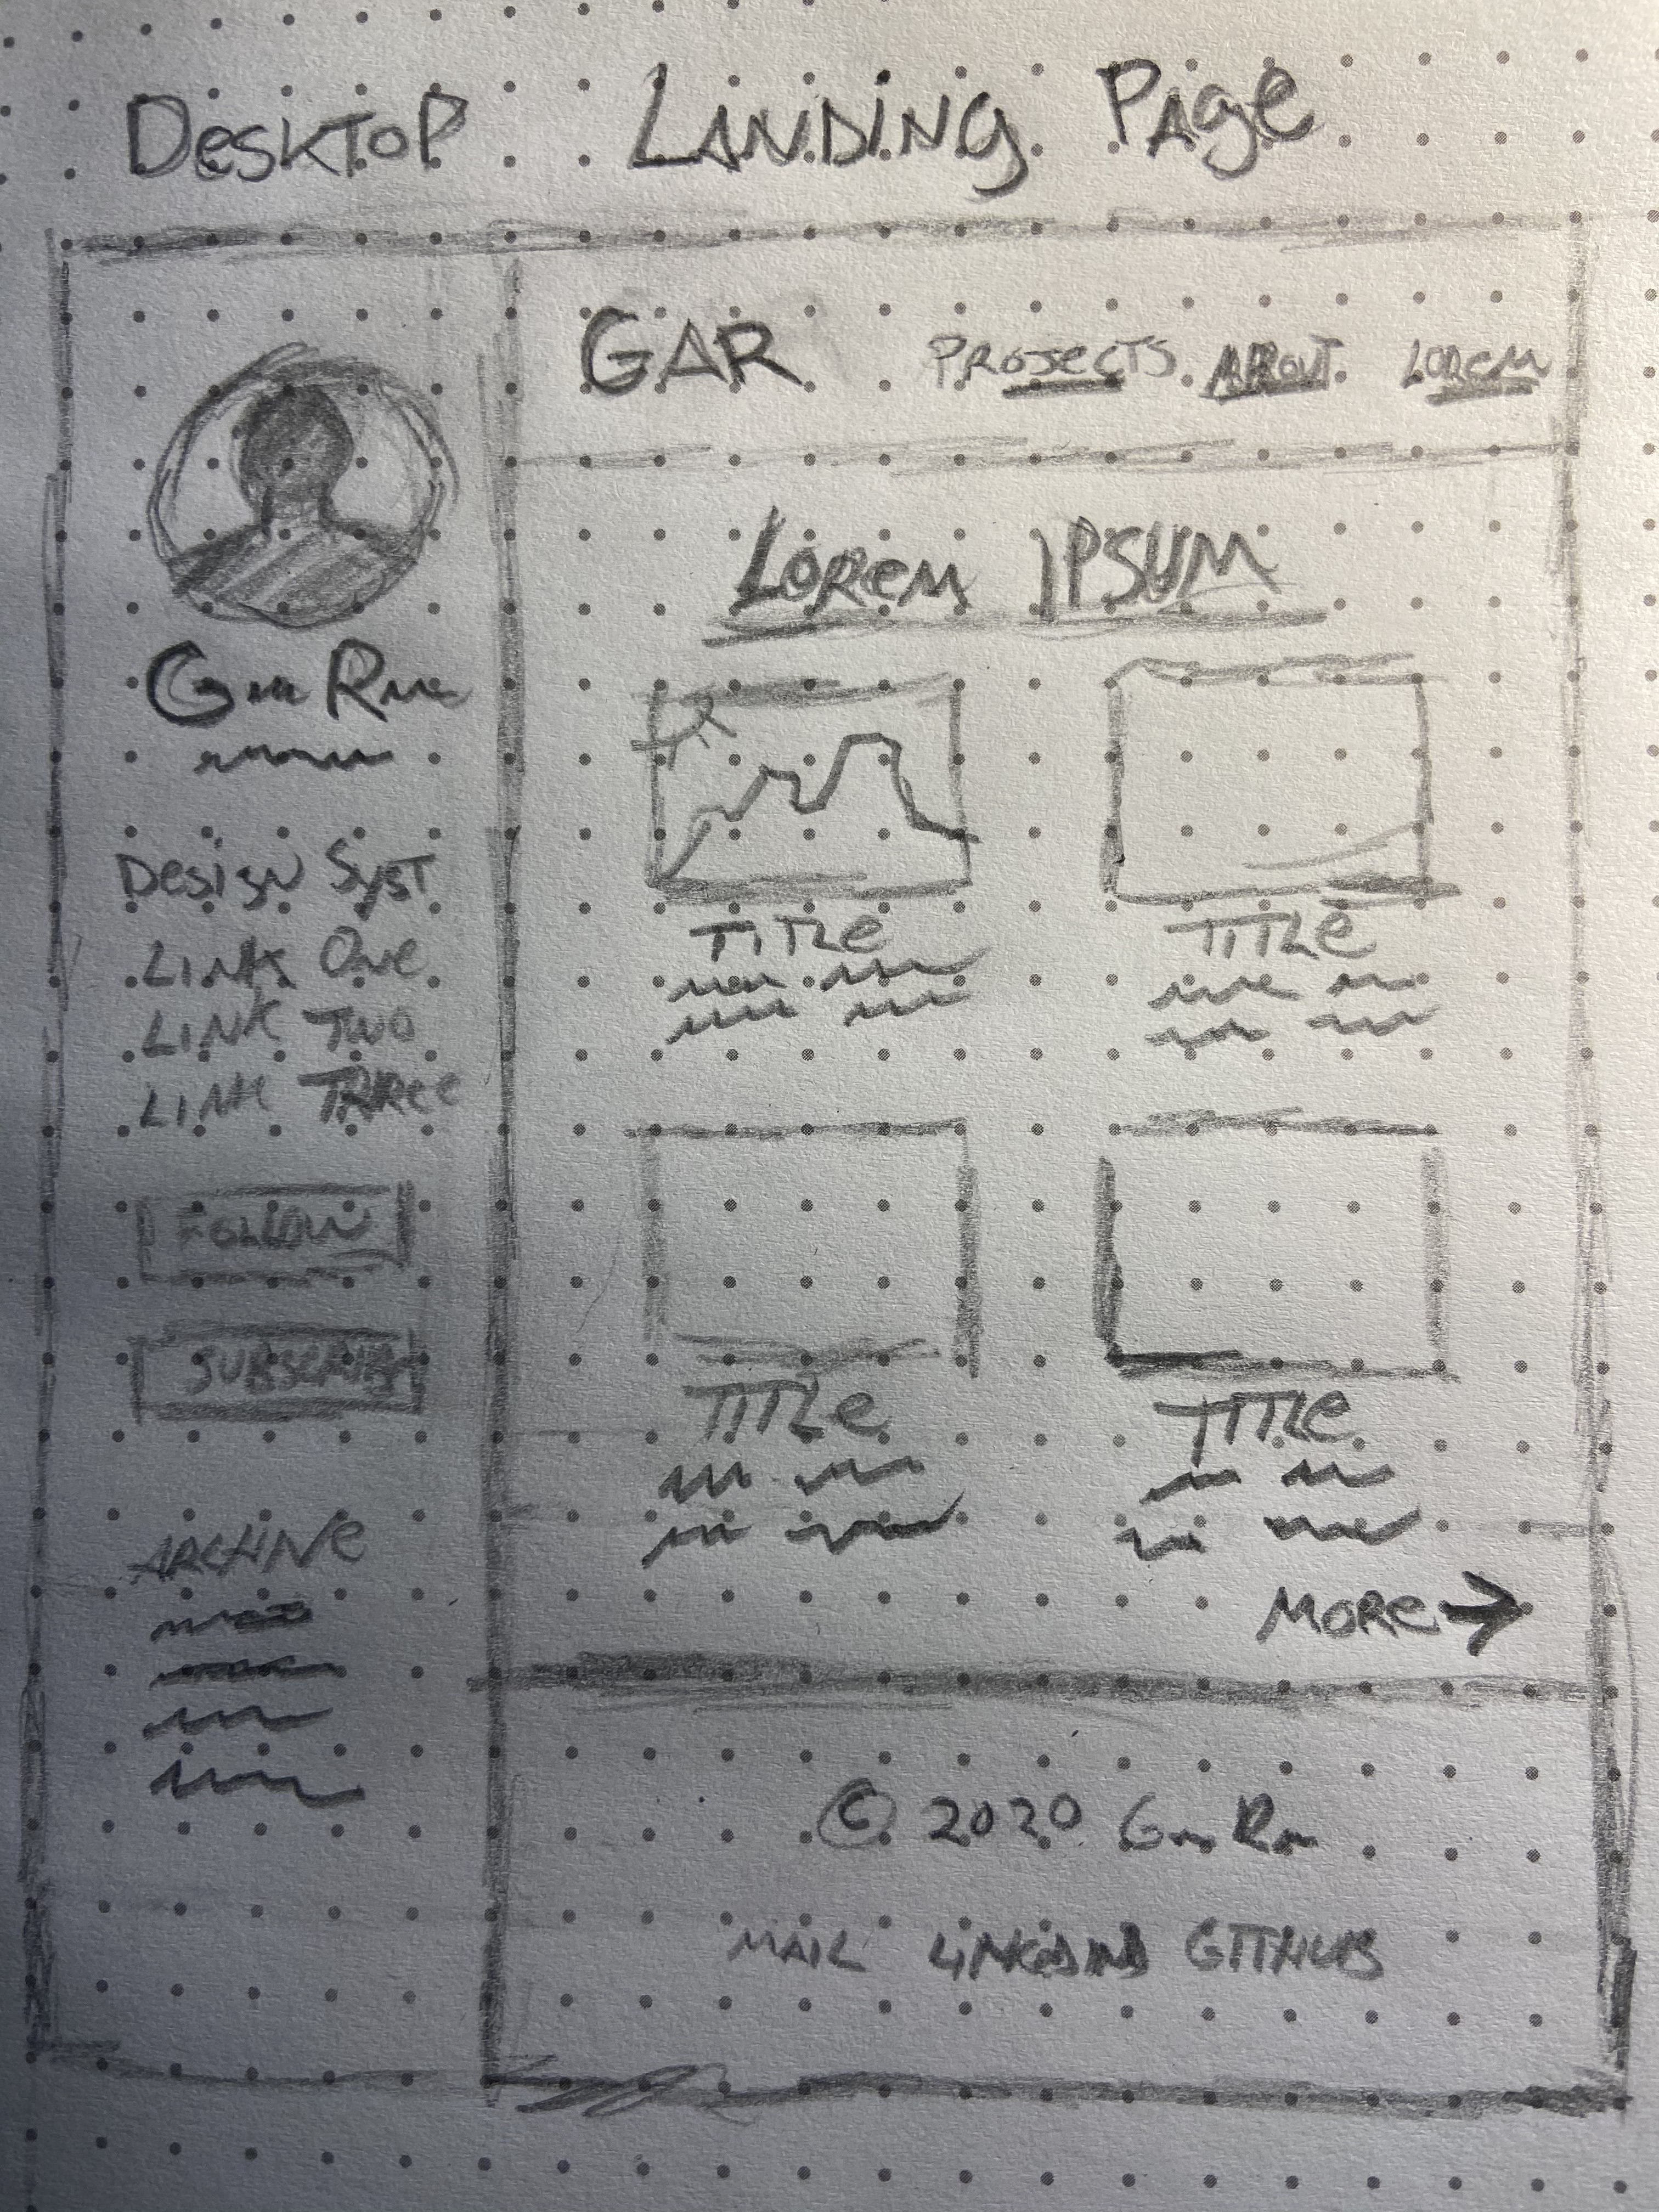 Desktop Landing Page
GAR
Projects About Lorem
Lorem Ipsum
Design Syst
Link One
Link Two
Link Three
Follow
Subscribe
Archive
Title
Title
Title
Title
More →
© 2020
Mail LinkedIn GitHub